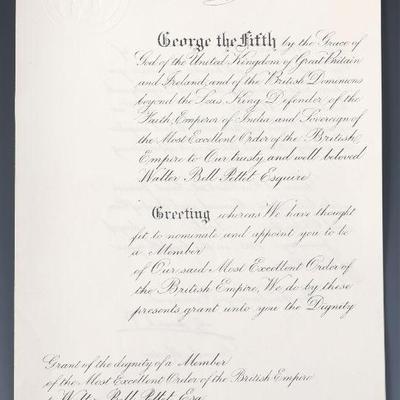 George the Fifth by the Grace of
God of the United Kingdom of Great Britain
and Ireland, and of the British Dominions
beyond the Seas, King, Defender of the
Faith, Emperor of India, and Sovereign of
the Most Excellent Order of the British
Empire to Our trusty and well beloved
Walter Bell Pettet Esquire
Greeting whereas We have thought
fit to nominate and appoint you to be
a Member
of Our said Most Excellent Order of
the British Empire, We do by these
presents grant unto you the Dignity
Grant of the dignity of a Member
of the Most Excellent Order of the British Empire
to Walter Bell Pettet Esq